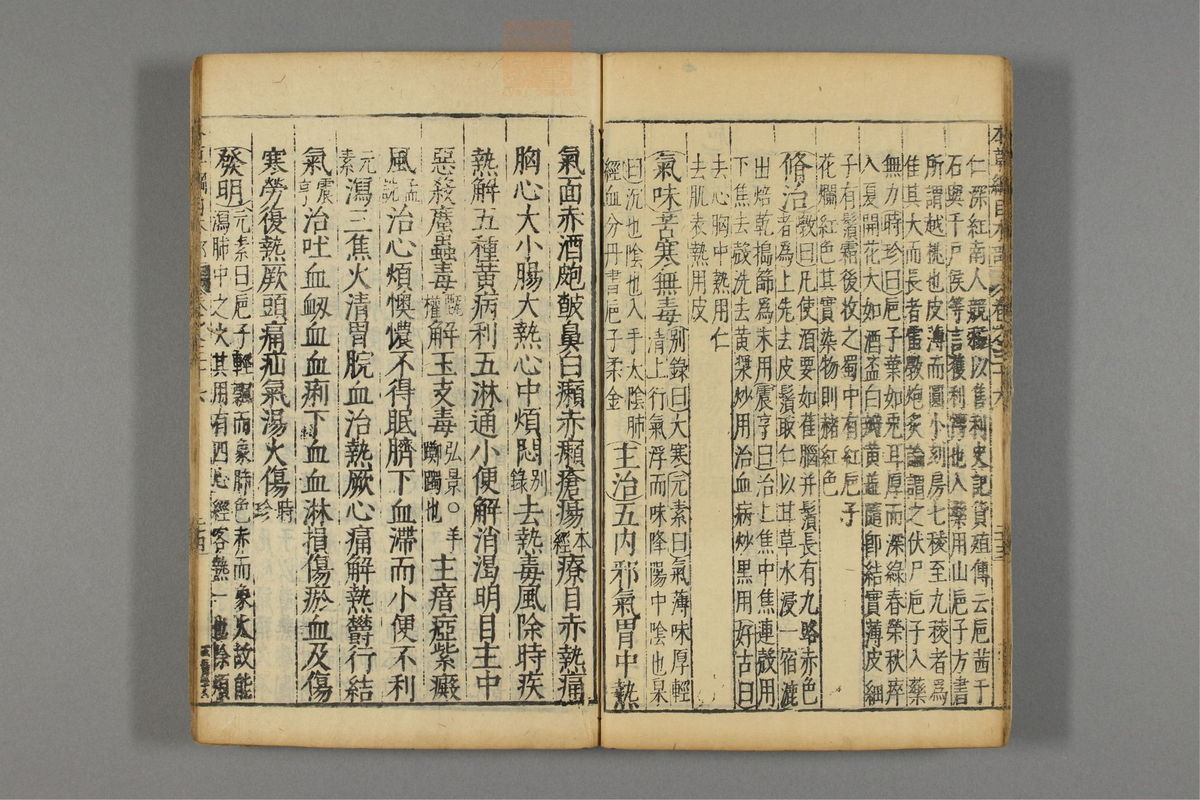 本草綱目木部 卷之三十六
仁深紅南人競種以售利史記貨殖傳云巵茜千
石與千戶侯等言獲利溥也入藥用山巵子方書
所謂越桃也皮薄而圓小刻房七稜至九稜者爲
隹其大而長者雷斅炮炙論謂之伏尸巵子入藥
無力時珍曰巵子葉如兎耳厚而深綠春榮秋瘁
入夏開花大如酒盃白瓣黃蘂隨卽結實薄皮細
子有鬚霜後收之蜀中有紅巵子
花爛紅色其實染物則赭紅色
脩治斅曰凡使須要如雀腦并鬚長有九路赤色
者為上先去皮鬚取仁以甘草水浸一宿漉
出焙乾搗篩爲末用震亨曰治上焦中焦連殼用
下焦去殼洗去黃漿炒用治血病炒黑用好古曰
去心胸中熱用仁
去肌表熱用皮
氣味苦寒無毒別錄曰大寒元素曰氣薄味厚輕
清上行氣浮而味降陽中陰也杲
曰沉也陰也入手太陰肺
經血分丹書巵子柔金
主治五內邪氣胃中熱
氣面赤酒皰皶鼻白癩赤癩瘡瘍本經療目赤熱痛
胸心大小腸大熱心中煩悶別錄去熱毒風除時疾
熱解五種黃病利五淋通小便解消渴明目主中
惡殺䗪蟲毒甄權解玉支毒弘景〇羊躑躅也主瘖瘂紫癜
風孟詵治心煩懊憹不得眠臍下血滯而小便不利
元素瀉三焦火清胃脘血治熱厥心痛解熱鬱行結
氣震亨治吐血衂血血痢下血血淋損傷瘀血及傷
寒勞復熱厥頭痛疝氣湯火傷時珍
發明元素曰巵子輕飄而象肺色赤而象火故能
瀉肺中之火其用有四心經客熱一也除煩